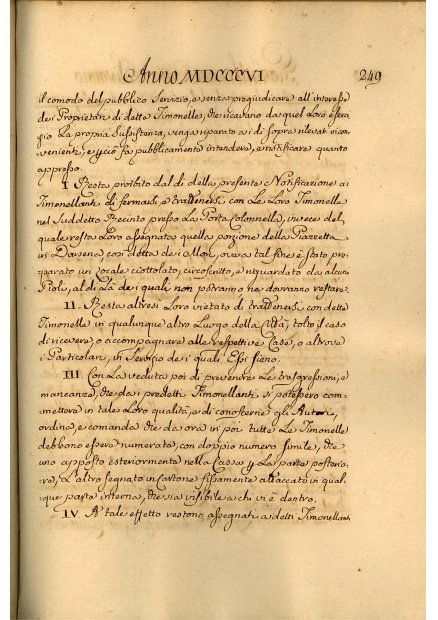 Anno MDCCCVI
249
il comodo del pubblico Servizio, e senza pregiudicare all' interesse
dei Proprietarj di dette Timonelle, che ricavano da quel Loro eserci
zio La propria Sussistenza, venga riparato ai di sopra rilevati incon
venienti, e pciò fa pubblicamente intendere, e notificare quanto
appresso.
I. Resta proibito dal dì della presente Notificazione ai
Timonellanti di fermarsi, e trattenersi con Le Loro Timonelle
nel Suddetto Recinto presso La Porta Colonnella, invece del
quale resta Loro assegnata quella porzione della Piazzetta
in Darsena così detta dei Mori, ove a tal fine è stato pre
parato un Locale ciottolato, circoscritto, e riguardato da alcuni
Pioli, al di Là dei quali non potranno ne dovranno restare.
II. Resta altresì Loro vietato di trattenersi con dette
Timonelle in qualunque altro Luogo della Città, tolto il caso
di ricevere, o accompagnare alle respettive Case, o altrove
i Particolari, in Servizio dei quali Essi sieno.
III. Con La veduta poi di prevenire Le trasgressioni, e
mancanze, che dai predetti Timonellanti si potessero com-
mettere in tale Loro qualità, e di conoscerne gli Autori,
ordina, e comanda che da ora in poi tutte Le Timonelle
debbono essere numerate, con doppio numero simile, che
uno apposto esteriormente nella Cassa p La parte posterio-
re, e L'altro segnato in Cartone fissamente attaccato in qual-
que parte interna, che sia visibile a chi vi è dentro.
IV. A tale effetto restono assegnati a detti Timonellanti